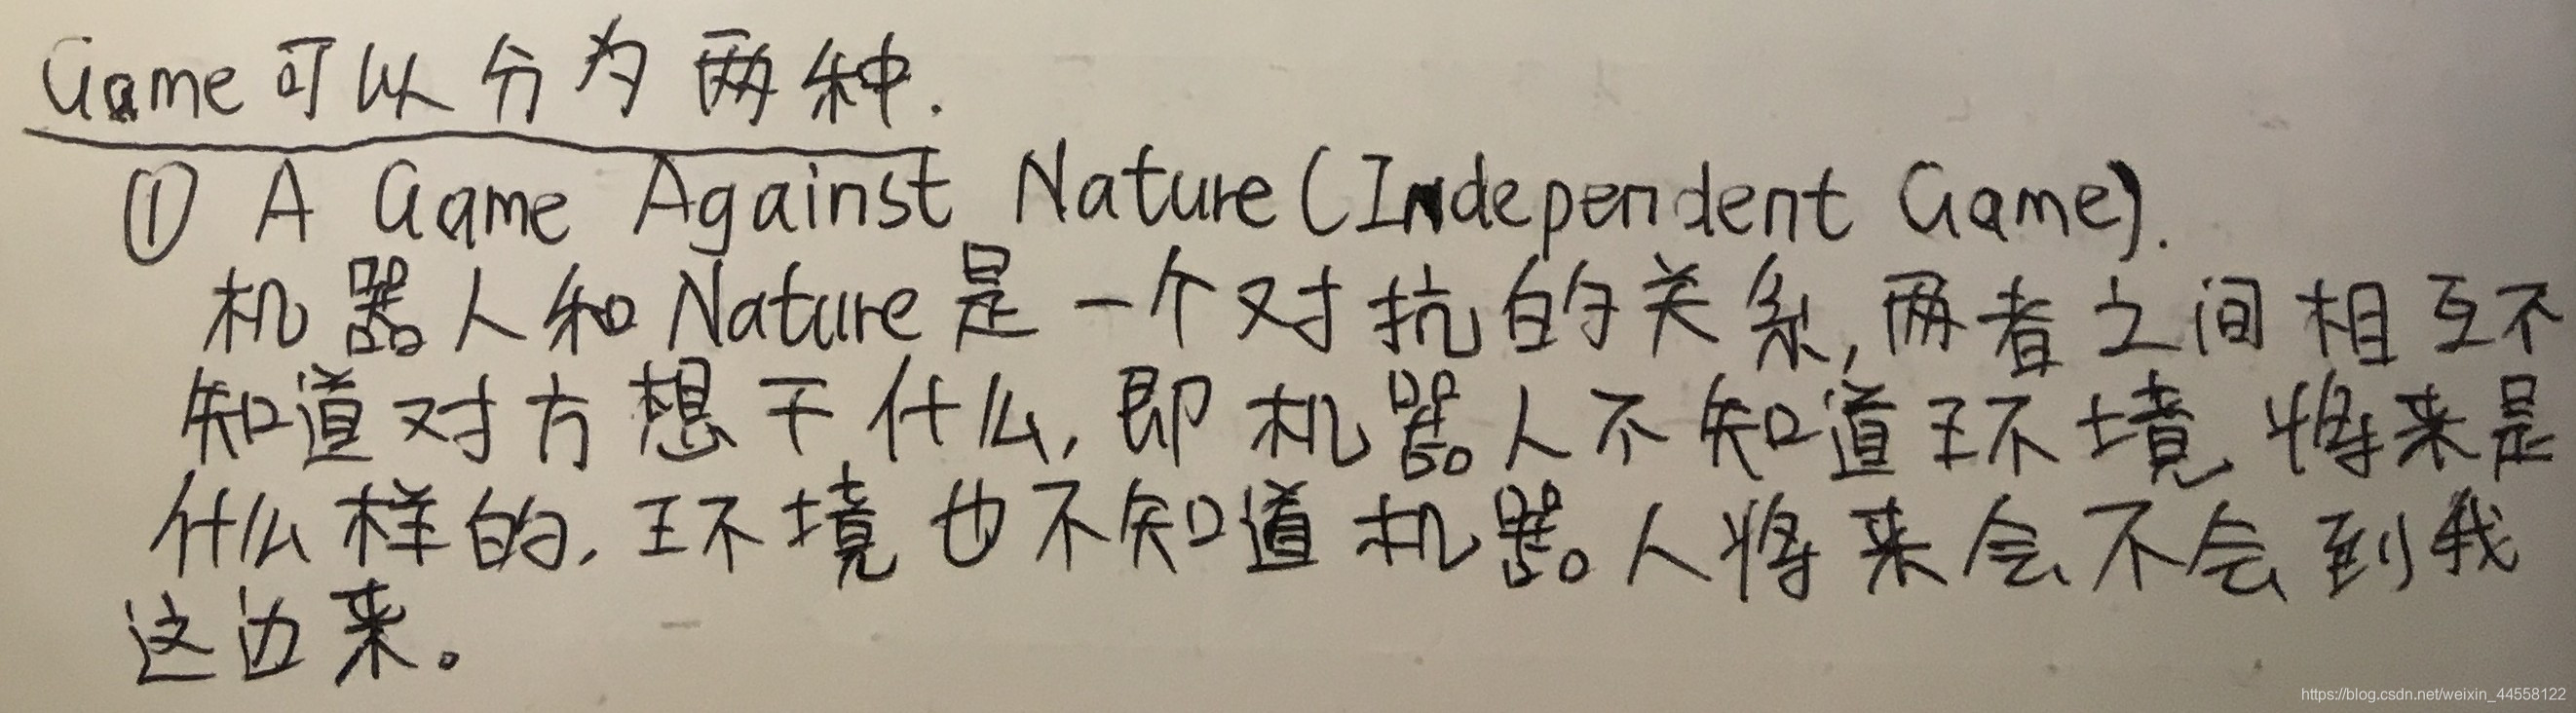 Game可以分为两种.
① A Game Against Nature(Independent Game).
机器人和Nature是一个对抗的关系,两者之间相互不
知道对方想干什么,即机器人不知道环境将来是
什么样的,环境也不知道机器人将来会不会到我
这边来。
https://blog.csdn.net/weixin_44558122